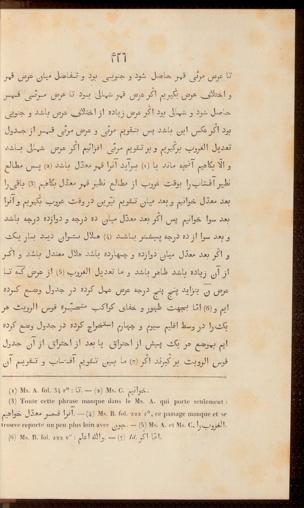 ۴۲۶
تا عرض مرئی قمر حاصل شود و جنوبی بود و تفاضل میان عرض قمر
و اختلاف عرض بگیریم اگر عرض قمر شمالی بود تا عرض مرئی قمر
حاصل شود و شمالی بود اگر عرض زیاده از اختلاف عرض باشد و جنوبی
بود اگر عکس این باشد پس بتقویم مرئی و عرض مرئی قمر از جدول
تعدیل الغروب برگیریم و بر تقویم مرئی افزائیم اگر عرض شمالی باشد
و الّا بکاهیم آنچه ماند یا (1) برآید آنرا قمر معدّل باشد (2) پس مطالع
نظیر آفتاب را بوقت غروب از مطالع نظیر قمر معدّل بکاهیم (3) باقی را
بعد معدّل خوانیم و بعد میان تقویم نیّرین در وقت غروب بگیریم و آنرا
بعد سوا خوانیم پس اگر بعد معدّل میان ده درجه و دوازده درجه باشد
و بعد سوا از ده درجه بیشتر باشد (4) هلال بتوان دید باریک
و اگر بعد معدّل میان دوازده و چهارده باشد هلال معتدل باشد و اگر
از آن زیاده باشد ظاهر باشد و ما تعدیل الغروب (5) از عرض تا
عرض بتزاید پنج پنج درجه عرض عمل کرده در جدول وضع کرده
ایم و (6) امّا بجهت ظهور و خفای کواکب متحیّره قوس الرویت هر
یک را در وسط اقلیم سیم و چهارم استخراج کرده در جدول وضع کرده
ایم بهوضع هر یک پیش از احتراق یا بعد از احتراق از آن جدول
قوس الرویت بر گیرند اگر (7) ما بین تقویم آفتاب و تقویم آن
(1) Ms. A. fol. 34 v°: تا. — (2) Ms. C. خوانیم.
(3) Toute cette phrase manque dans le Ms. A. qui porte seulement :
آنرا قمر معدّل خواهیم. — (4) Ms. B. fol. 222 r°, ce passage manque et se
trouve reporté un peu plus loin avec چون. — (5) Ms. A. et Ms. C. الغروب را.
(6) Ms. B. fol. 222 v° : والله اعلم. — (7) Id. امّا اگر.